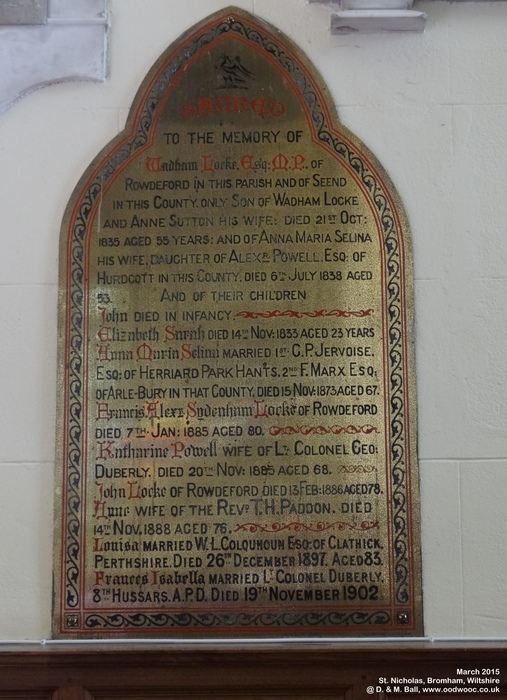 SACRED
TO THE MEMORY OF
Wadham Locke, Esq: M.P., OF
ROWDEFORD IN THIS PARISH AND OF SEEND
IN THIS COUNTY, ONLY SON OF WADHAM LOCKE
AND ANNE SUTTON HIS WIFE: DIED 21ST OCT:
1835 AGED 55 YEARS: AND OF ANNA MARIA SELINA
HIS WIFE, DAUGHTER OF ALEXR POWELL, ESQ: OF
HURDCOTT IN THIS COUNTY, DIED 6TH JULY 1838 AGED
53. AND OF THEIR CHILDREN
John DIED IN INFANCY.
Elizabeth Sarah DIED 14TH NOV: 1833 AGED 23 YEARS
Anna Maria Selina MARRIED 1ST C.P. JERVOISE,
ESQ: OF HERRIARD PARK HANTS, 2ND F. MARX ESQ:
OF ARLE-BURY IN THAT COUNTY, DIED 15 NOV: 1873 AGED 67.
Francis Alexr Sydenham Locke OF ROWDEFORD
DIED 7TH JAN: 1885 AGED 80.
Katharine Powell WIFE OF LT COLONEL GEO:
DUBERLY, DIED 20TH NOV: 1885 AGED 68.
John Locke OF ROWDEFORD DIED 13 FEB: 1886 AGED 78.
Anne WIFE OF THE REVD T.H. PADDON. DIED
14TH NOV, 1888 AGED 76.
Louisa MARRIED W.L. COLQUHOUN ESQ: OF CLATHICK,
PERTHSHIRE. DIED 26TH DECEMBER 1897. AGED 83.
Frances Isabella MARRIED LT COLONEL DUBERLY,
8TH HUSSARS. A.P.D. DIED 19TH NOVEMBER 1902.
March 2015
St. Nicholas, Bromham, Wiltshire
@ D. & M. Ball, www.oodwooc.co.uk